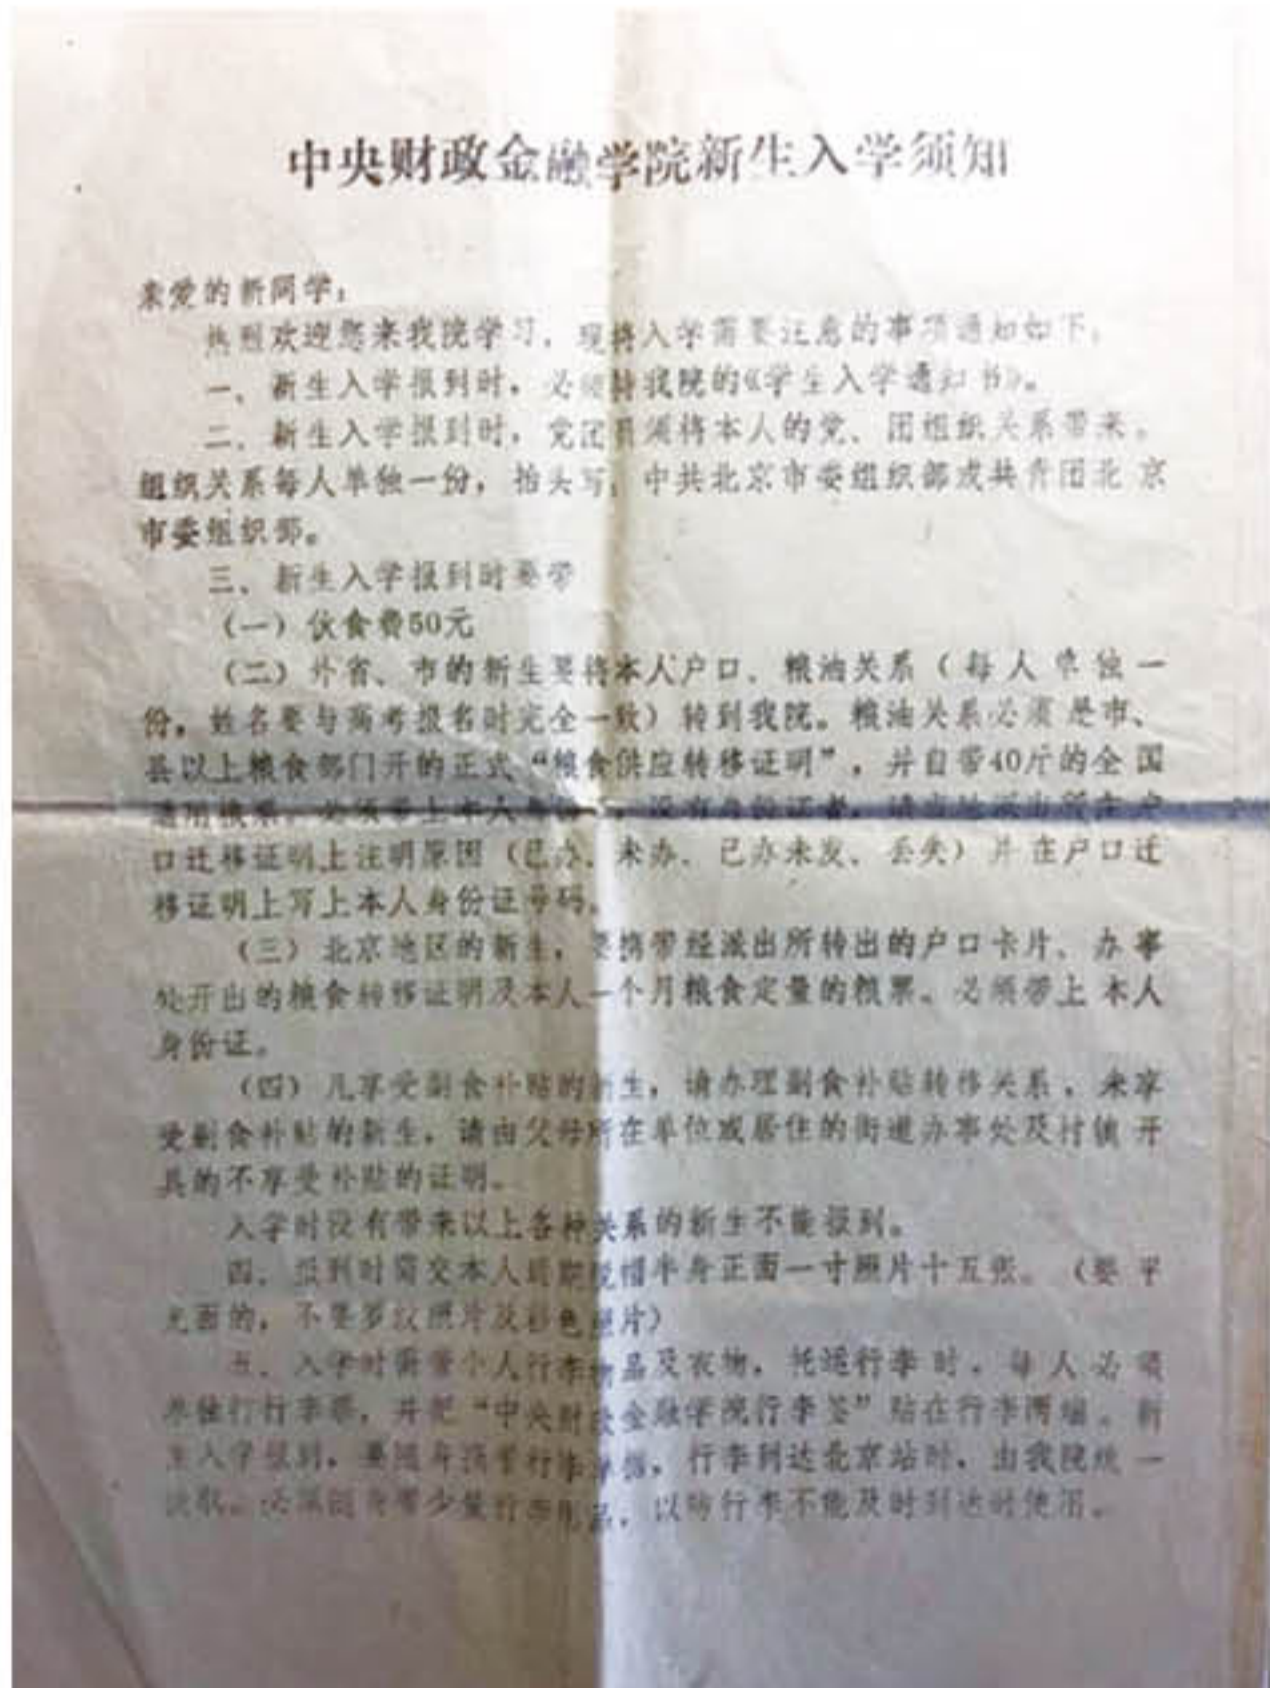 中央财政金融学院新生入学须知
亲爱的新同学：
热烈欢迎您来我院学习，现将入学需要注意的事项通知如下：
一、新生入学报到时，必须持我院的《学生入学通知书》。
二、新生入学报到时，党团员须将本人的党、团组织关系带来。
组织关系每人单独一份，抬头写：中共北京市委组织部或共青团北京
市委组织部。
三、新生入学报到时要带
（一）伙食费50元
（二）外省、市的新生要将本人户口、粮油关系（每人单独一
份，姓名要与高考报名时完全一致）转到我院。粮油关系必须是市、
县以上粮食部门开的正式“粮食供应转移证明”，并自带40斤的全国
通用粮票，必须带上本人身份证，没有身份证者，请当地派出所在户
口迁移证明上注明原因（已办、未办、已办未发、丢失）并在户口迁
移证明上写上本人身份证号码。
（三）北京地区的新生，要携带经派出所转出的户口卡片、办事
处开出的粮食转移证明及本人一个月粮食定量的粮票。必须带上本人
身份证。
（四）凡享受副食补贴的新生，请办理副食补贴转移关系，未享
受副食补贴的新生，请由父母所在单位或居住的街道办事处及村镇开
具的不享受补贴的证明。
入学时没有带来以上各种关系的新生不能报到。
四、报到时需交本人近期脱帽半身正面一寸照片十五张。（要平
光面的，不要罗纹照片及彩色照片）
五、入学时需带个人行李物品及衣物，托运行李时，每人必须
单独打行李票，并把“中央财政金融学院行李签”贴在行李两端。新
生入学报到，要随身携带行李单据，行李到达北京站时，由我院统一
少量行李用品，以防行李不能及时到达时使用。